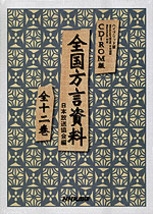 CD-ROM版
全国方言資料
日本放送協会編
全十二巻